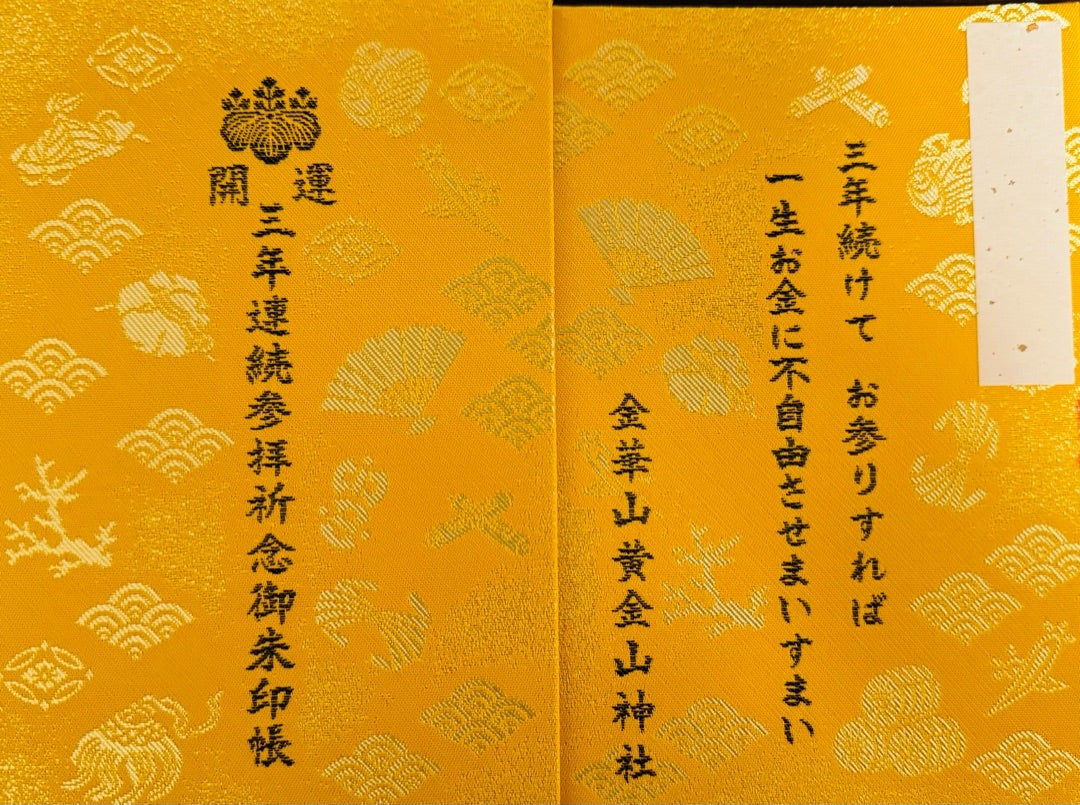 三年続けて お参りすれば
一生お金に不自由させまいすまい
金華山黄金山神社
開運
三年連続参拝祈念御朱印帳